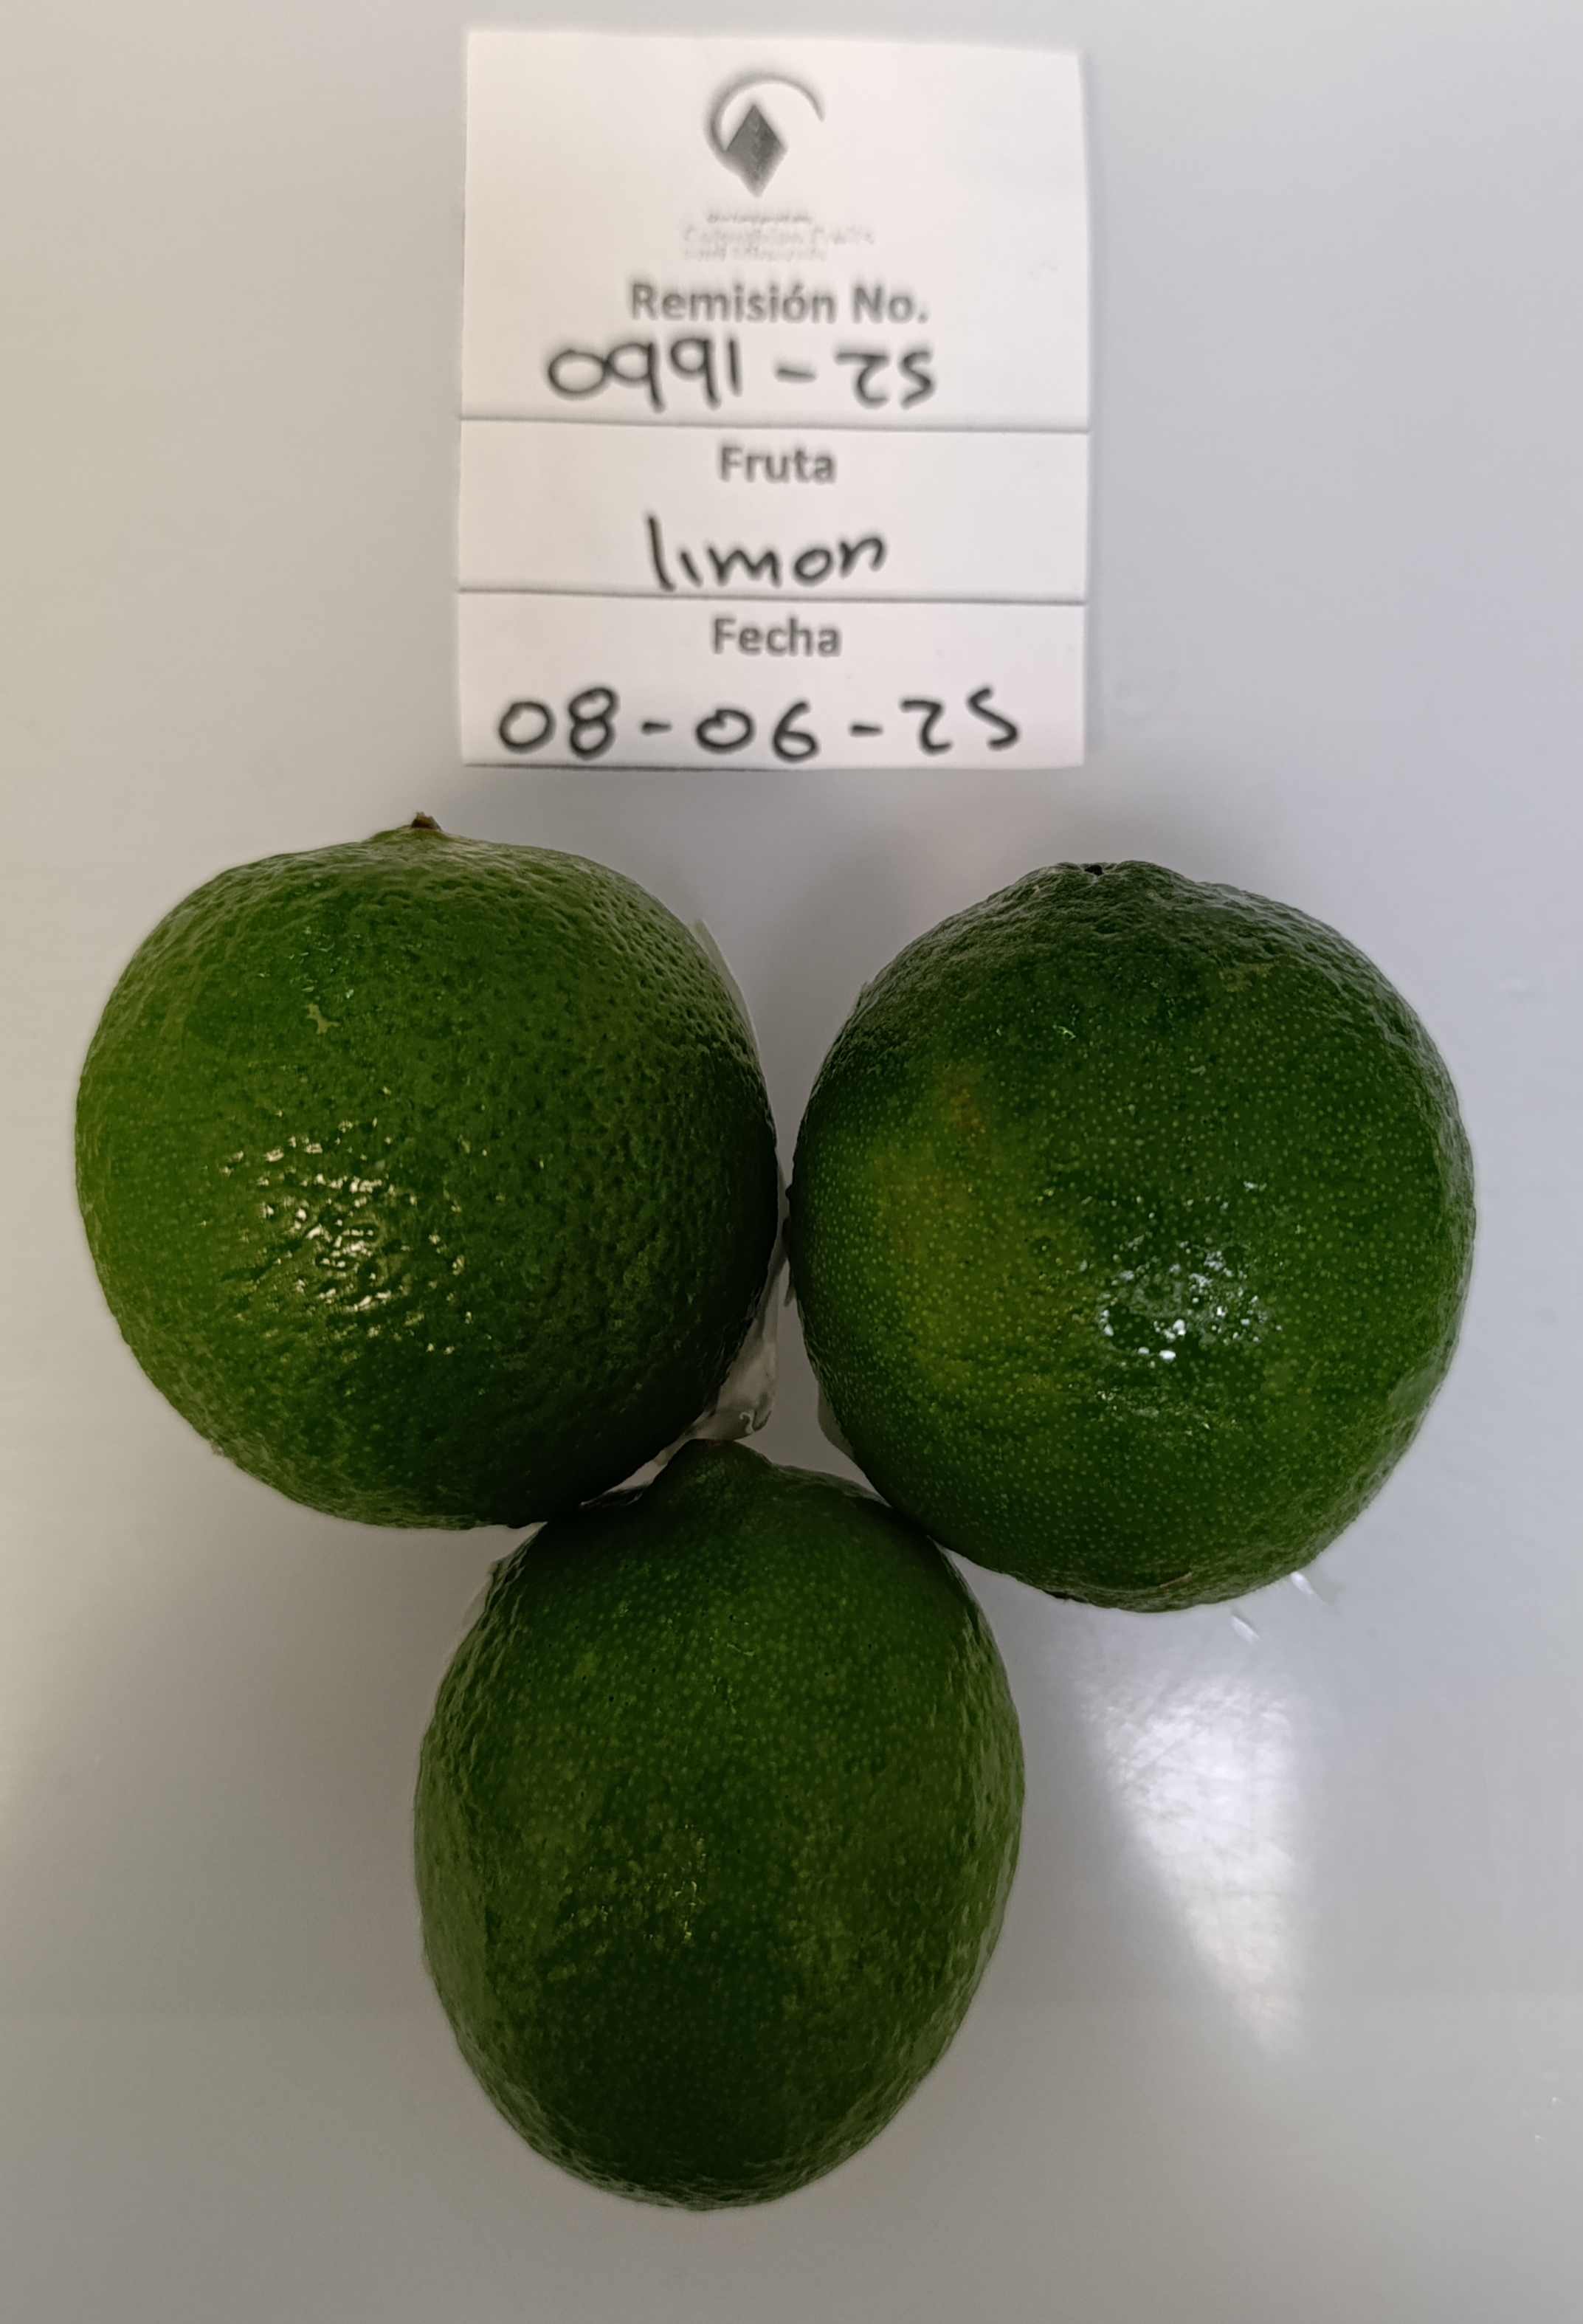 Remisión No.
0991-25
Fruta
limon
Fecha
08-06-25